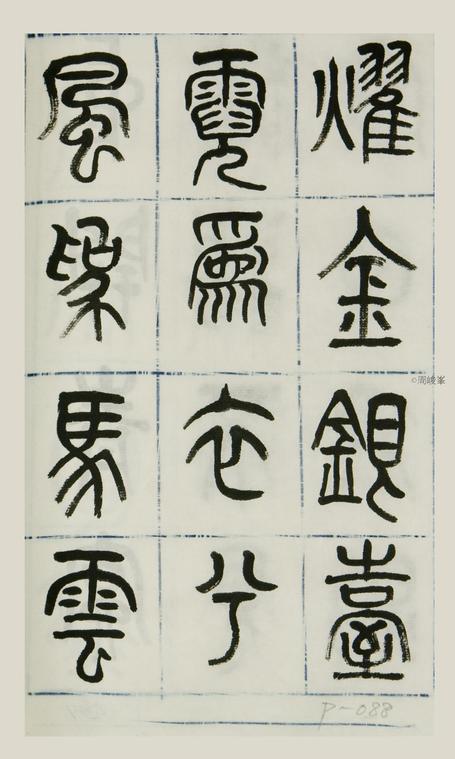 燿金銀臺
霓爲衣兮
風爲馬雲
©周峻峯
P-088